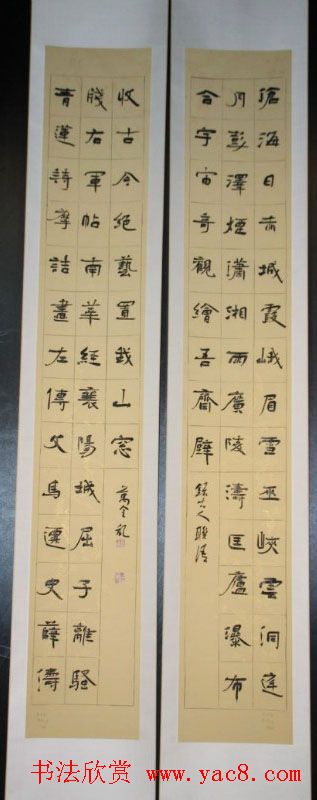 滄海日赤城霞峨眉雪巫峽雲洞庭
月彭澤煙瀟湘雨廣陵濤匡廬瀑布
合宇宙奇觀繪吾齋壁
錄古人聯語
青蓮詩摩詰畫左傳文馬遷史薛濤
牋右軍帖南華經襄陽城屈子離騷
收古今絕藝置我山窓
书法欣赏 www.yac8.com